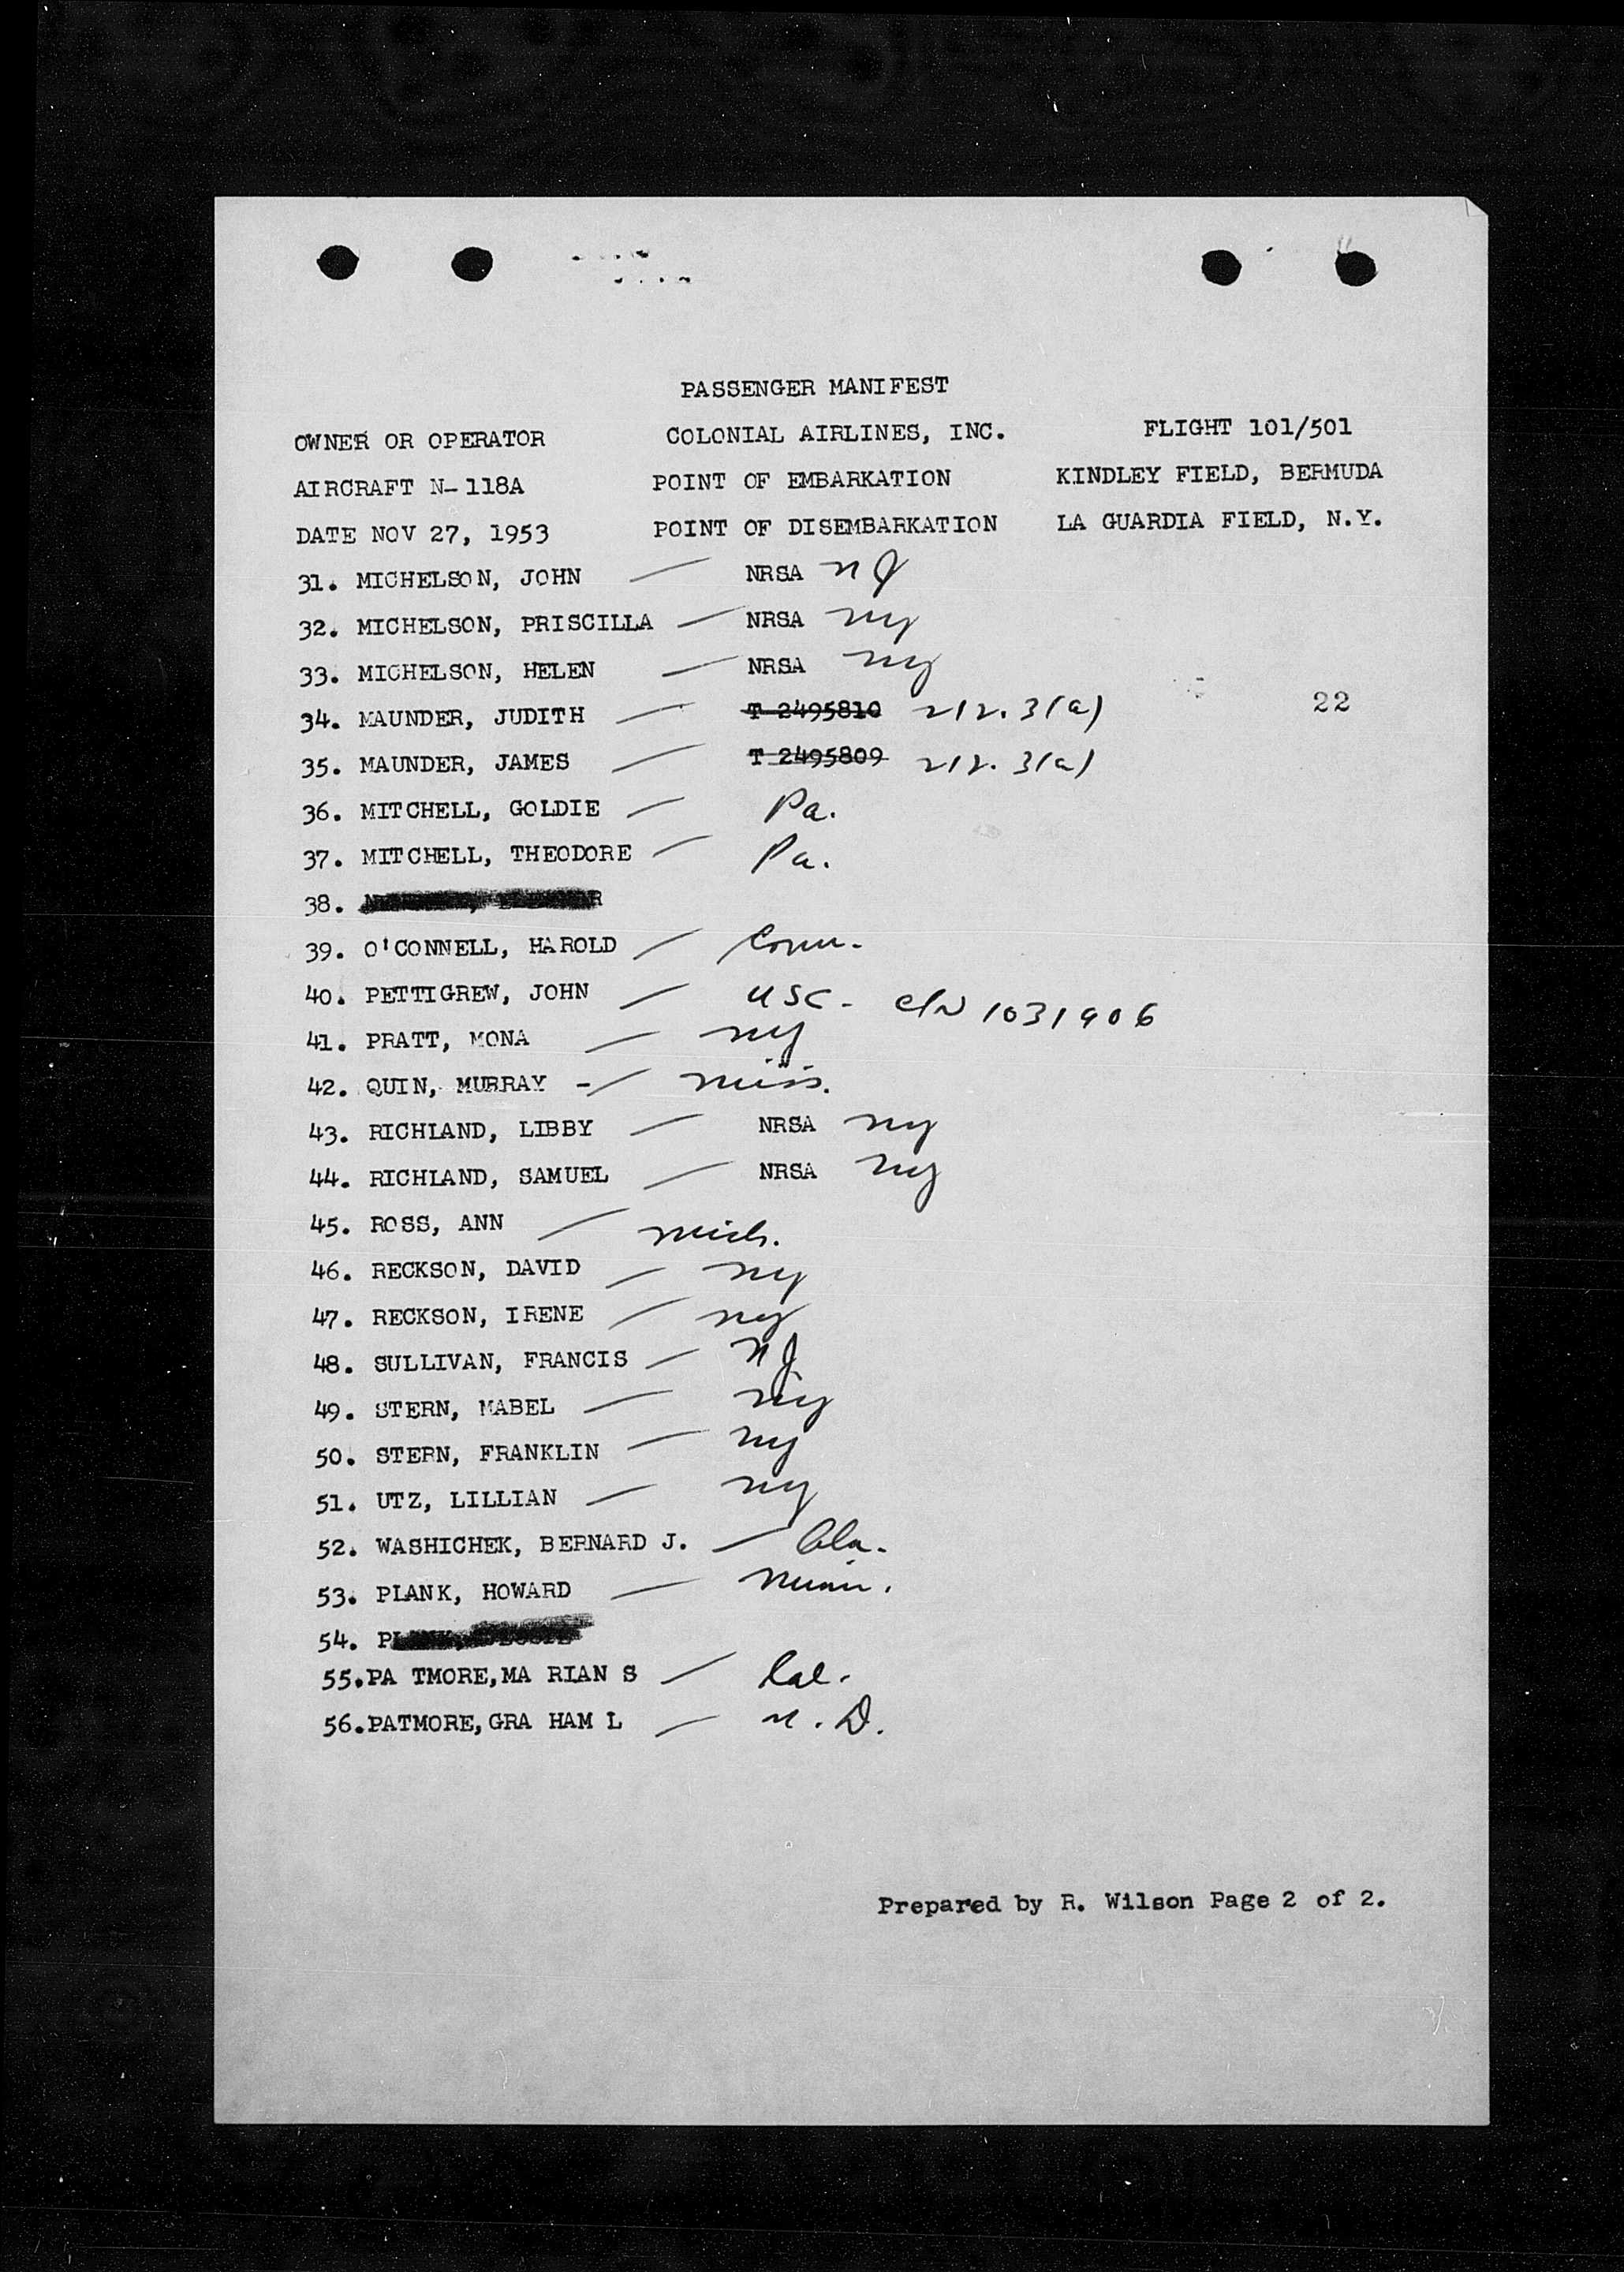 PASSENGER MANIFEST
OWNER OR OPERATOR COLONIAL AIRLINES, INC. FLIGHT 101/501
AIRCRAFT N-118A POINT OF EMBARKATION KINDLEY FIELD, BERMUDA
DATE NOV 27, 1953 POINT OF DISEMBARKATION LA GUARDIA FIELD, N.Y.
31. MICHELSON, JOHN — NRSA NJ
32. MICHELSON, PRISCILLA — NRSA ny
33. MICHELSON, HELEN — NRSA ny
34. MAUNDER, JUDITH — T 2495810 212.3(a) 22
35. MAUNDER, JAMES — T 2495809 212.3(a)
36. MITCHELL, GOLDIE — Pa.
37. MITCHELL, THEODORE — Pa.
38.
39. O'CONNELL, HAROLD — Conn.
40. PETTIGREW, JOHN — USC- C/N 1031906
41. PRATT, MONA — ny
42. QUIN, MURRAY - — miss.
43. RICHLAND, LIBBY — NRSA ny
44. RICHLAND, SAMUEL — NRSA ny
45. ROSS, ANN — mich.
46. RECKSON, DAVID — ny
47. RECKSON, IRENE — ny
48. SULLIVAN, FRANCIS — NJ
49. STERN, MABEL — ny
50. STERN, FRANKLIN — ny
51. UTZ, LILLIAN — ny
52. WASHICHEK, BERNARD J. —
53. PLANK, HOWARD — Minn.
54.
55.PA TMORE,MA RIAN S — Cal.
56.PATMORE,GRA HAM L — N.D.
Prepared by R. Wilson Page 2 of 2.